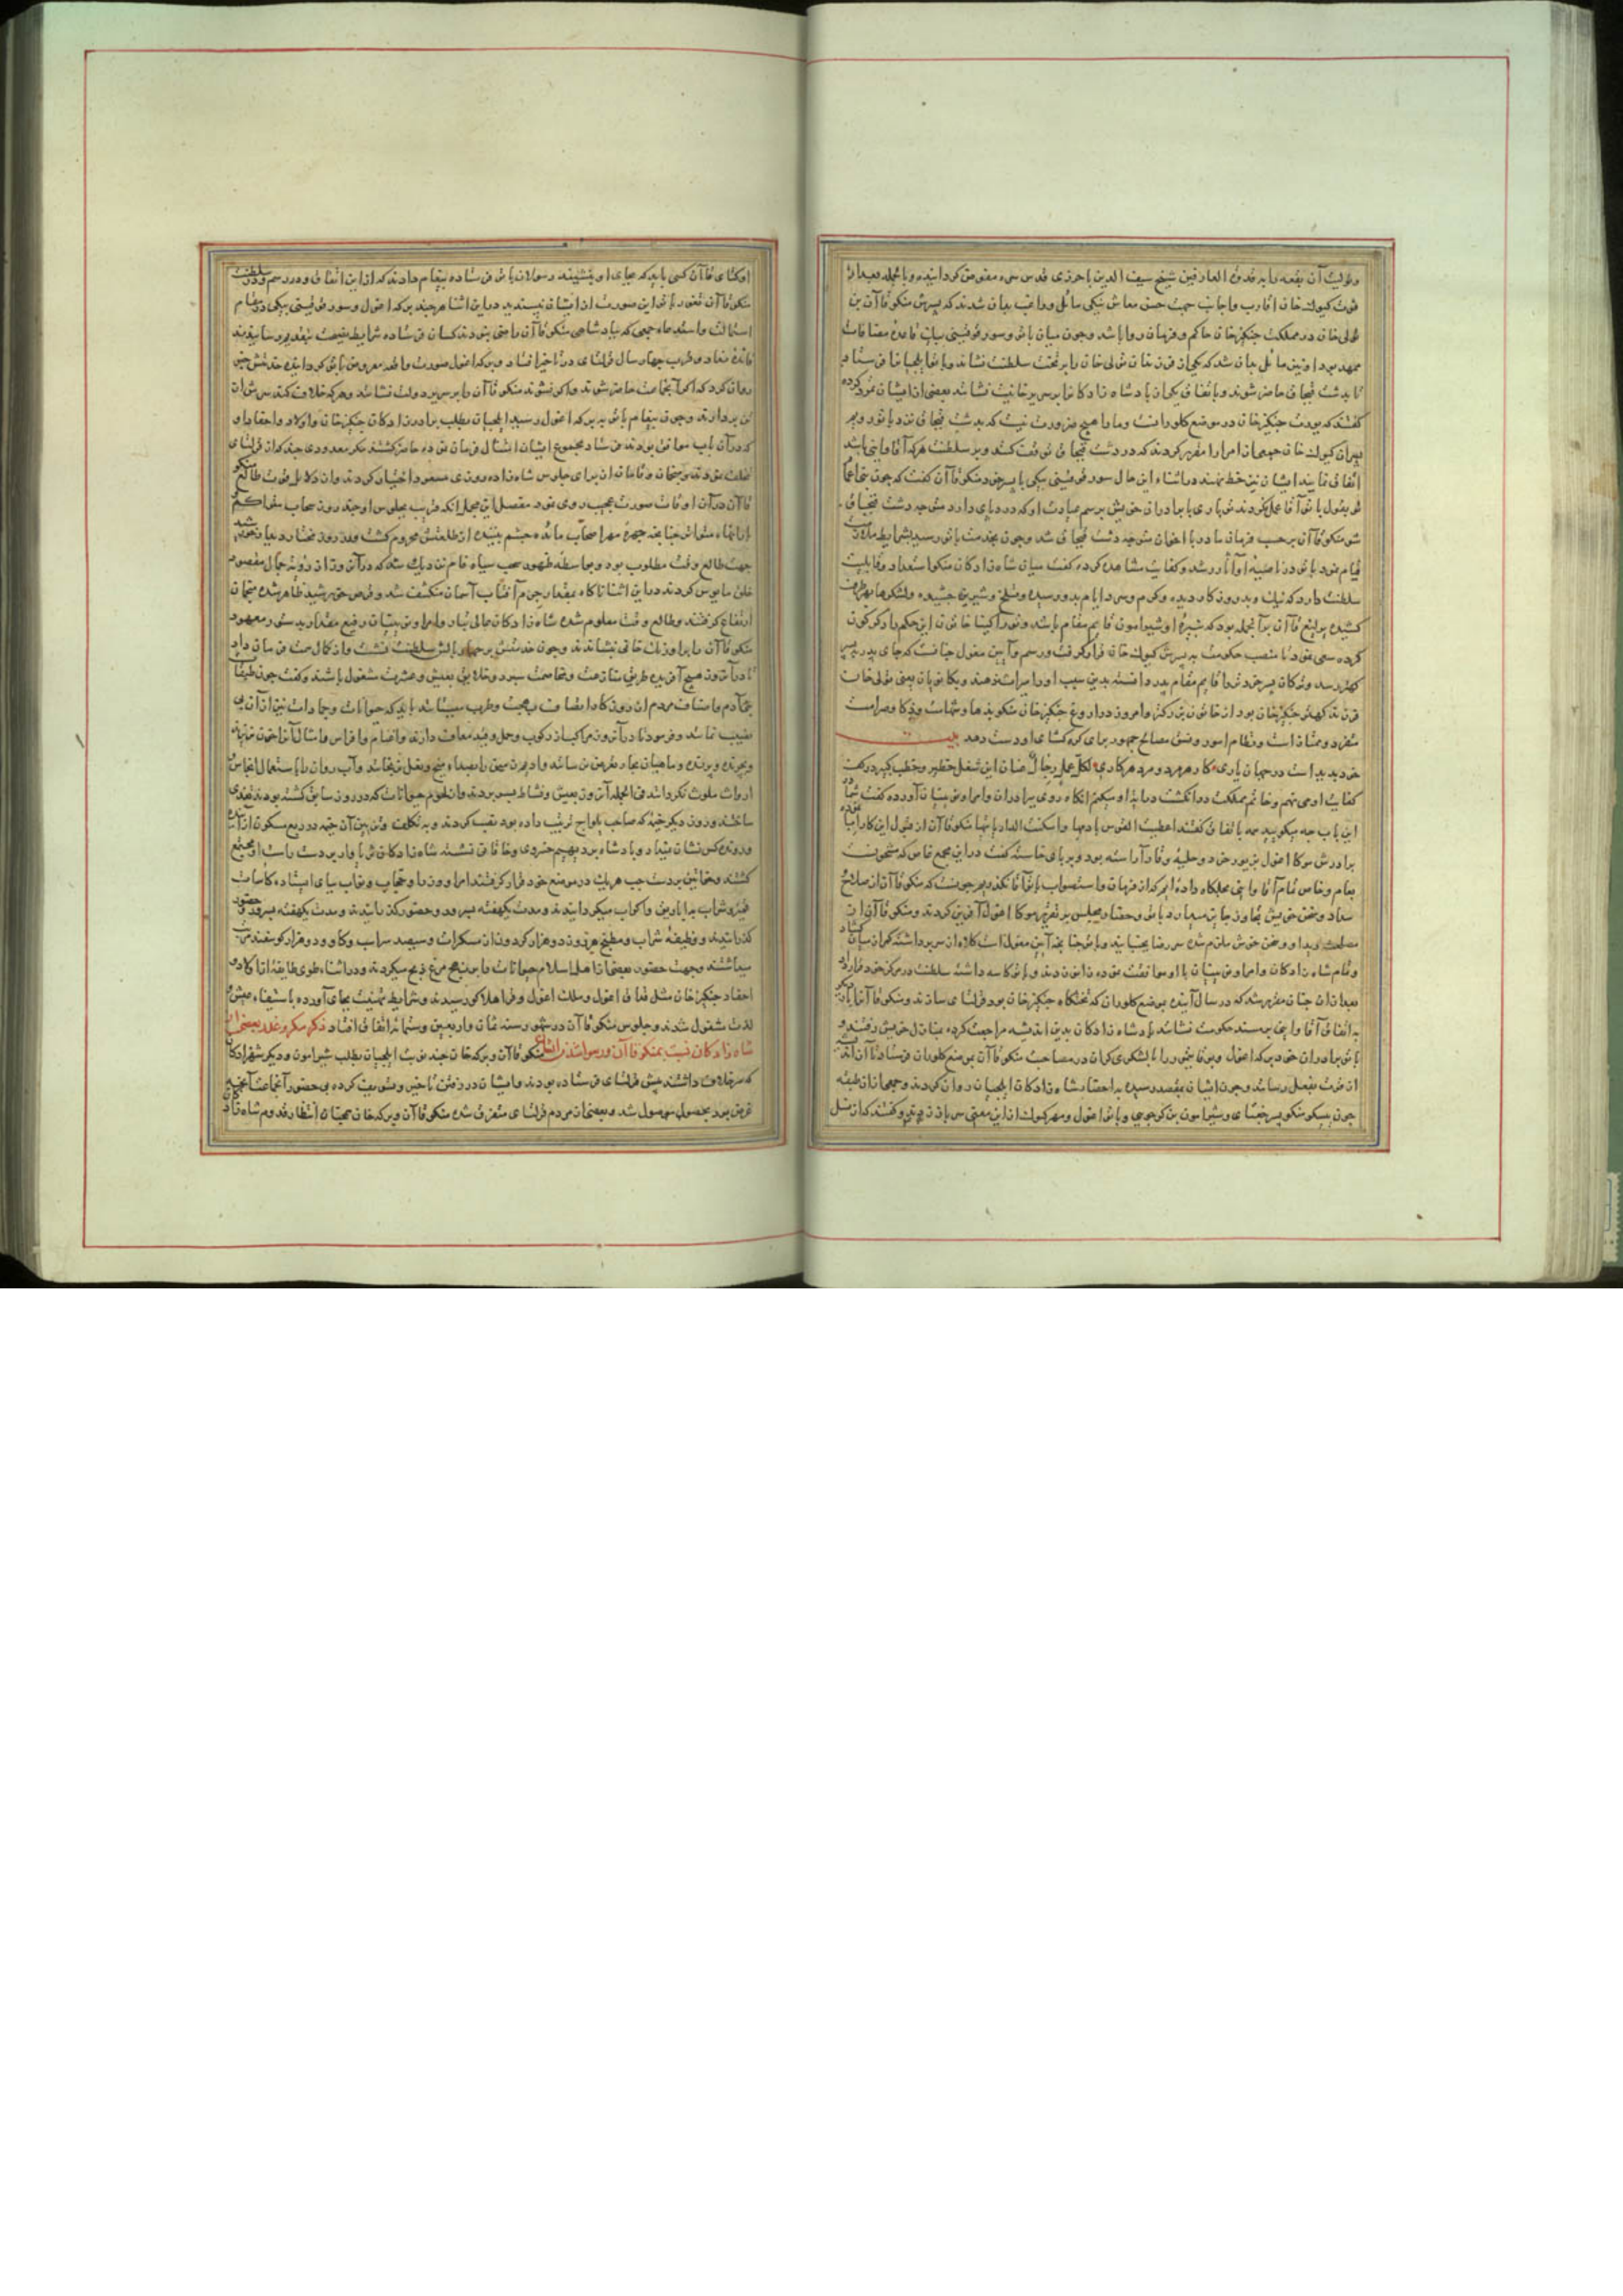 وتولیت آن بقعه را بر قدوة العارفین شیخ سیف الدین باخرزی قدس سره مفوض کردانیده وبالجمله بعد از
فوت کیوک خان اقارب واجانب جهت حسن معاش بیکی مائل وراغب بدان شدند که پسرش منکوقاآن بن
تولی خان در مملکت جنکیزخان حاکم وفرمان روا باشد وجون میان باتو وسورقوقیتی بیکی قاعده مصافات
ممهد بود او نیز مائل بدان شد که یکی از فرزندان تولی خان را بر تخت سلطنت نشاند وبا
تا بدشت قبجاق حاضر شوند وباتفاق یکی از پادشاه زادکان را بر سریر خانیت نشانند بعضی از ایشان تمرد کرده
کفتند که یورت جنکیزخان در موضع کلوران است وما را هیچ ضرورت نیست که بدشت قبجاق نزد باتو رویم
پسران کیوک خان جمعی از امرا را مقرر کردند که در دشت قبجاق توقف کنند وبر سلطنت هرکه آقا واینی باشد
اتفاق نمایند ایشان نیز خط بدهند در اثناء این حال سورقوقیتی بیکی با پسر خود منکوقاآن کفت که جون
بقول باتو آقا عمل نکردند تو باری با برادران خویش برسم عیادت او که درد پای دارد متوجه دشت قبجاق
شو منکوقاآن بر حسب فرمان مادر با اخوان متوجه دشت قبجاق شد وجون بخدمت باتو رسید بشرایط ملازمت
قیام نمود باتو در ناصیه او آثار رشد وکفایت مشاهده کرده کفت میان شاه زادکان منکو استعداد وقابلیت
سلطنت دارد که نیک وبد روزکار دیده وکرم وسرد ایام بدو رسیده وتلخ وشیرین جشیده ولشکرها بهر طرف
کشیده یرلیغ قاآن بر آنجمله بود که نبیره او شیرامون قایم مقام باشد وتوراکینا خاتون این حکم را دکرکون
کرده سعی نمود تا منصب حکومت به پسرش کیوک خان قرار کرفت ورسم وآیین مغول جنانست که جای پدر به پسر
کهتر رسد وترکان پسر خرد تر را قایم مقام پدر دانسته بدین سبب او را میراث دهند
فرزند کهتر جنکیزخان بود از خاتون بزرکتر وامروز در اروغ جنکیزخان منکو بدها وشهامت وذکا وصرامت
متفرد وممتاز است ونظام امور ونسق مصالح جمهور برای کره کشای او دست دهد بیت
خرد بدید است در جهان باری کار هر مرد ومرد هر کاری لکل عمل رجال ضمان این شغل خطیر وخطب کبیر در کف
کفایت او می نهم وخاتم مملکت در انکشت درایت او میکنم آنکاه روی برادران وامرا ونوینان آورده کفت شما در
این باب جه میکویید همه باتفاق کفتند اعطیت القوس باریها واسکنت الدار بانیها منکوقاآن از قبول این کار
برادرش موکا اغول بزیور خرد وحلیه وقار آراسته بود وبر پای خاسته کفت در این مجمع خاص که مشحونست
بعام وخاص تمام آقا واینی مجلکاه داده ایم که از فرمان واستصواب باتو آقا نکذریم جونست که منکوقاآن از صلاح
سداد وسخن خویش تجاوز جایز میدارد باتو وحضار مجلس بر تقریر موکا اغول آفرین کردند ومنکوقاآن از
مصلحت دید او وسخن خوش ملزم شده سر رضا بجنبانید وباتو جنانجه آیین مغول است کلاه از سر برداشته کمر از میان کشاد
وتمام شاه زادکان وامرا ونوینان با او موافقت نموده زانو زدند وباتو کاسه داشته سلطنت در مرکز خود قرار داد
بعد از آن جنان مقرر شد که در سال آینده بموضع کلوران که تختکاه جنکیزخان بود قوریلتای سازند ومنکوقاآن را بار دیکر
به اتفاق آقا واینی بمسند حکومت نشانند پادشاه زادکان بدین اندیشه مراجعت کرده بمنازل خویش رفتند و
باتو برادران خود برکه اغول وبوقاتیمور را با لشکری کران در مصاحبت منکوقاآن بموضع کلوران فرستاد تا آن اندیشه
از قوت بفعل رسانند وجون ایشان بمقصد رسیده به احضار شاه زادکان ایلجیان روان کردند وجمعی از آن طبقه
جون ییسو منکو پسر جغتای وشیرامون بن کوجو وباتو اغول از این معنی سر باز زدند وکفتند که از نسل
اوکتای قاآن کسی باید که بجای او بنشیند رسولان باتو فرستاده پیغام دادند که از این اتفاق
منکوقاآن نفور باتو این صورت از ایشان نپسندید در این اثنا هرجند برکه اغول وسورقوقیتی بیکی در مقام
استمالت واستدعاء جمعی که بپادشاهی منکوقاآن راضی نبودند کسان فرستاده شرایط نصیحت بتقدیم رسانیدند
فائده نداد وقریب جهار سال قوریلتای در تاخیر افتاد وبرکه اغول صورت واقعه معروض باتو کردانیده
روان کرد که اکر آن جماعت حاضر شوند واکر نشوند منکوقاآن را بر سریر دولت نشانند وهرکه خلاف کند سرش از
تن بردارند وجون پیغام باتو به برکه اغول رسید ایلجیان بطلب برادرزادکان جنکیزخان واولاد واحفاد او
که در آن باب موافق بودند فرستاد مجموع ایشان امتثال فرمان نموده حاضر کشتند مکر معدودی جند که از قوریلتای
تخلف نمودند ومنجمان وقامان از برای جلوس شاه زاده روزی مسعود اختیار کردند واز دلایل قوت طالع منکو
قاآن در آن اوقات صورت عجیب روی نمود مفصل این مجمل آنکه قریب بجلوس او جند روز سحاب متراکم
جهت طالع وقت مطلوب بود وبواسطه ظهور سحب سیاه فام نزدیک شد که در آن روز از رؤیة جمال مقصود
خلق مایوس کردند در این اثنا ناکاه بمقدار جرم آفتاب آسمان منکشف شد وقرص خورشید ظاهر شده منجمان
ارتفاع کرفتند وطالع وقت معلوم شده شاه زادکان عالی تبار وامرا ونوینان رفیع مقدار بدستور معهود
منکوقاآن را بر اورنک خانی نشاندند وجون خدمتش بر جهار بالش سلطنت نشست واز کمال مرحمت فرمان داد
تا در آن روز هیج آفریده طریق منازعت ومخاصمت نسپرد وخلایق بعیش وعشرت مشغول باشند وکفت جون طبقات
بنی آدم واصناف مردم از روزکار انصاف بهجت وطرب میستانند باید که حیوانات وجمادات نیز از آن بی
نصیب نمانند وفرمود تا در آن روز مراکب از رکوب وحمل وقید معاف دارند واغنام وافراس وامثال آن را خون نریزند
وجرنده وپرنده وماهیان بحار تعرض نرسانند وادیم زمین را بصداع میخ ونعل نرنجانند وآب روان را باستعمال انجاس
ارواث ملوث نکردانند فی الجمله آن روز بعیش ونشاط بسر بردند واز لحوم حیوانات که در روز سابق کشته بودند
ساختند وروز دیکر خیمه که صاحب یلواج ترتیب داده بود نصب کردند
ورونده کس نشان نمیداد وپادشاه بر دیهیم خسروی وخاقانی نشسته شاه زادکان ثریا وار بر دست راست او مجتمع
کشتند وخواتین بر دست جب هریک در موضع خود قرار کرفتند امرا ووزرا وحجاب ونواب بپای ایستاده کاسات
خمر وشراب به اباریق واکواب میکردانیدند ومدت یکهفته
کذرانیدند ووظیفه شراب ومطبخ هر روز دو هزار کردون از مسکرات وسیصد سر اسب وکاو ودو هزار کوسفند
میداشتند وجهت حضور بعضی از اهل اسلام حیوانات را بر نهج شرع ذبح میکردند ودر اثناء طوی طایفه از اولاد
احفاد جنکیزخان مثل قداق اغول وملک اغول وقرا هلاکو رسیدند وشرایط تهنیت بجای آورده باستیفاء عیش
لذت مشغول شدند وجلوس منکوقاآن در شهور سنه ثمان واربعین وستمائه اتفاق افتاد ذکر مکر وغدر بعضی از
شاه زادکان نسبت بمنکوقاآن منکوقاآن وبرکه خان جند نوبت ایلجیان بطلب شیرامون ودیکر شهزادکان
که سر خلاف داشتند پیش قوریلتای فرستاده بودند وایشان در رفتن تاخیر وتسویف کرده بی حضور آن جماعت آنجه
غرض بود بحصول موصول شد وبعضی از مردم قوریلتای متفرق شده منکوقاآن وبرکه خان همجنان انتظار قدوم شاه زادکان